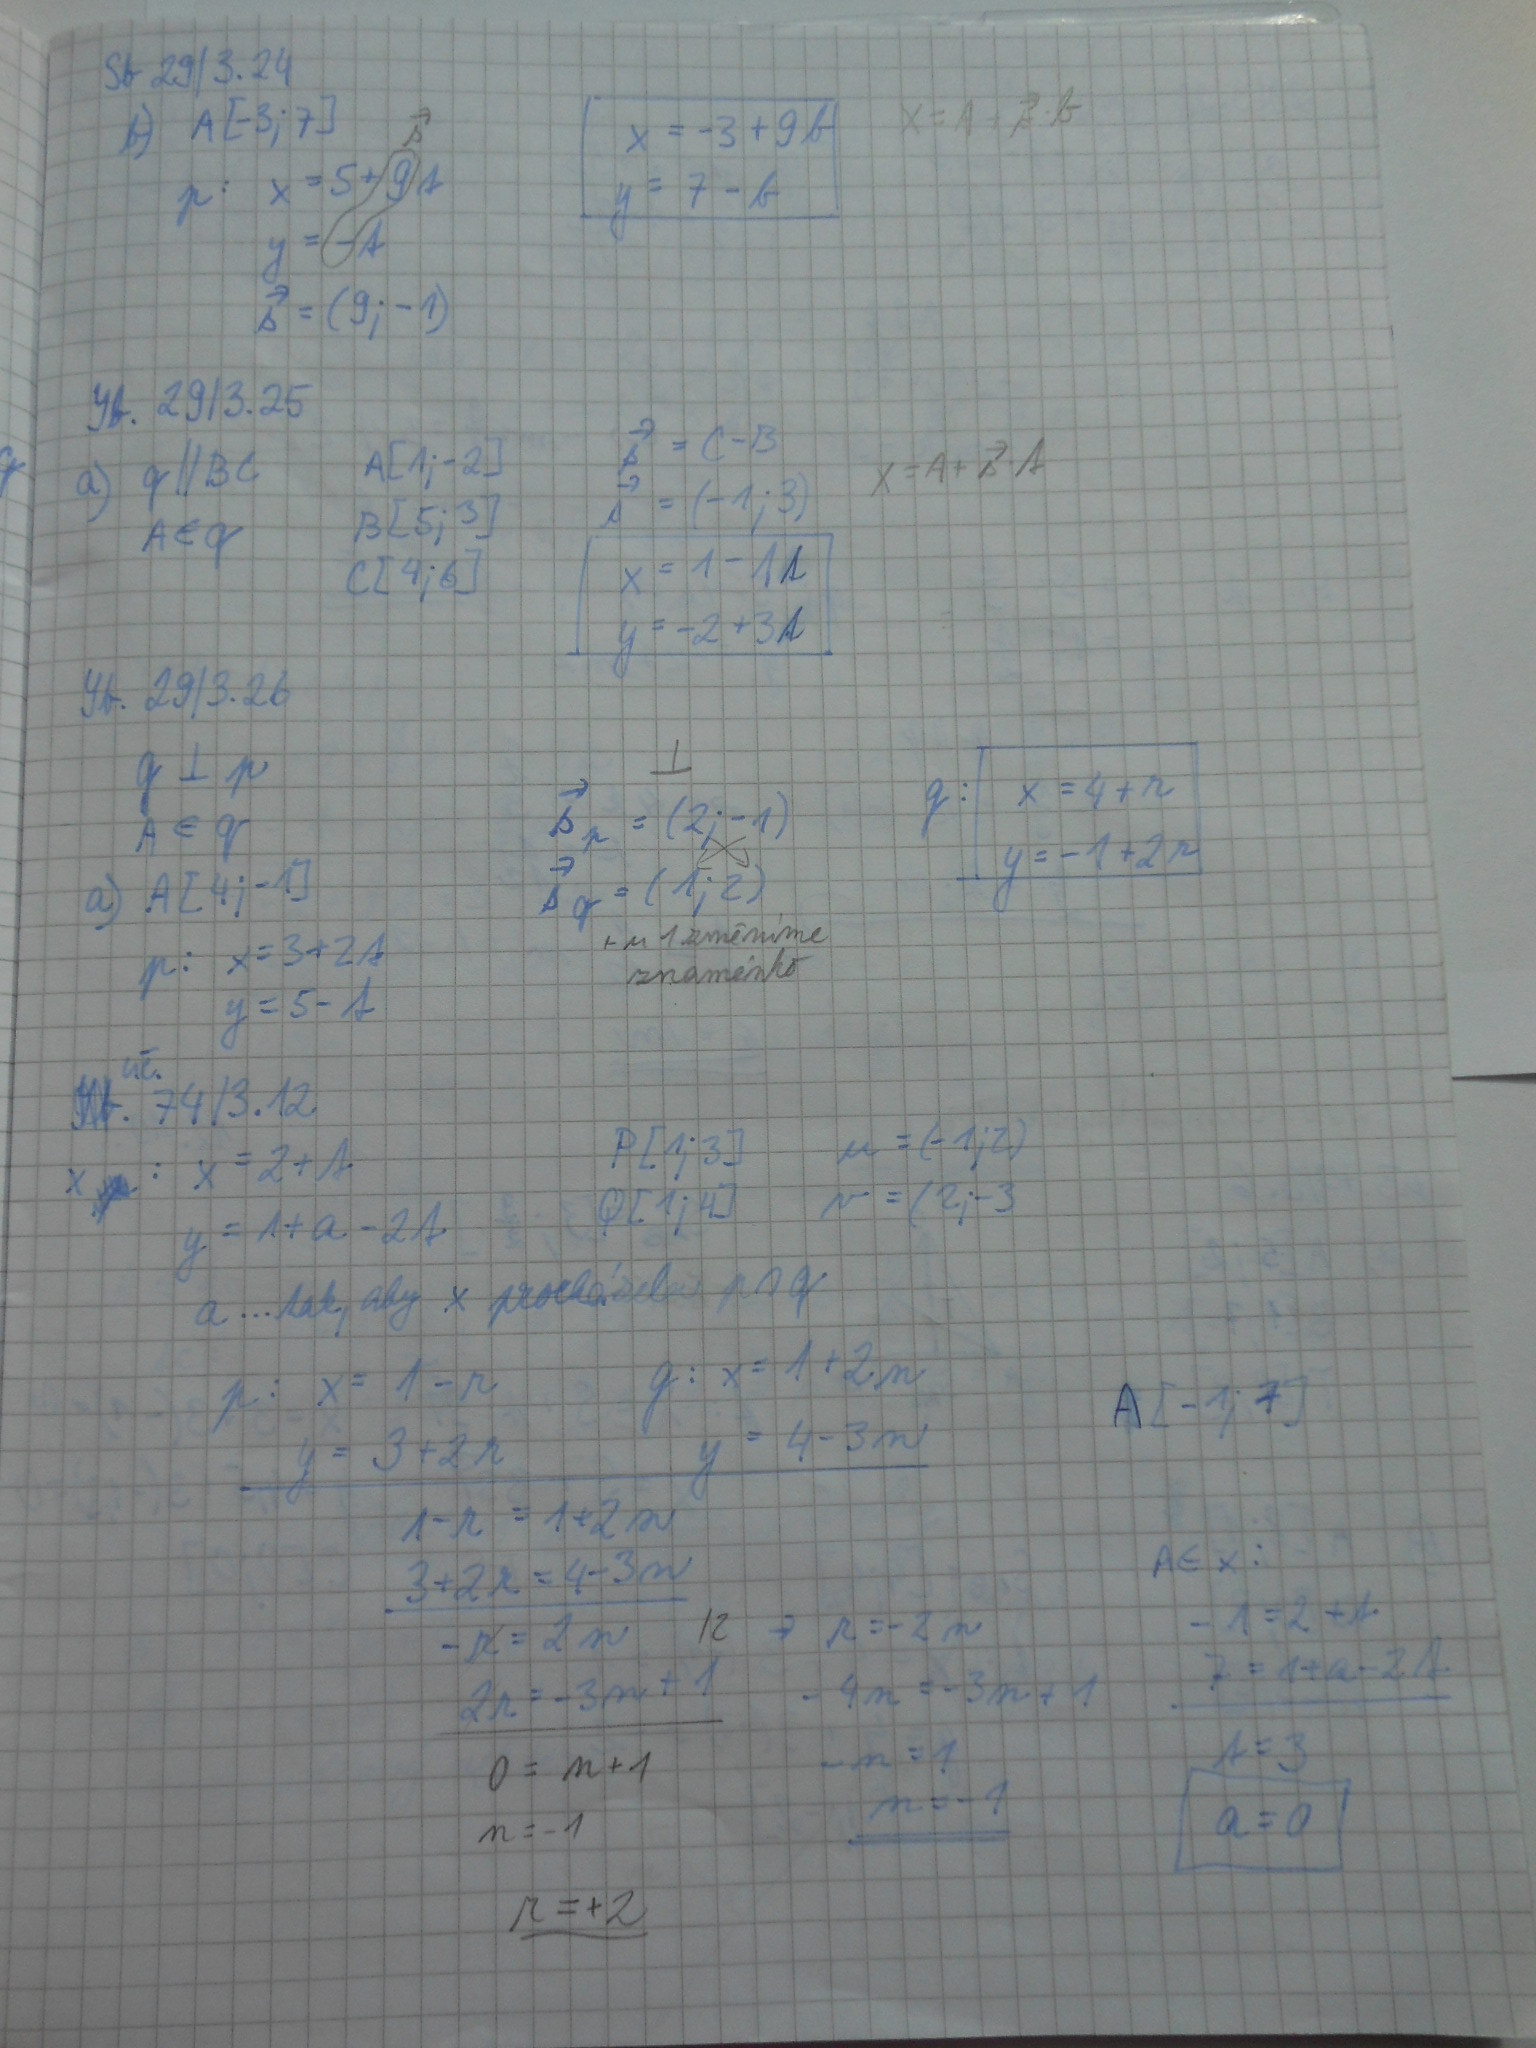 Sb 29/3.24
b) A[-3;7]
p: x = 5+9t
y = -t
s⃗ = (9;-1)
s⃗
x = -3+9b
y = 7-b
X = A + s⃗·b
Sb. 29/3.25
a) q || BC
A ∈ q
A[1;-2]
B[5;3]
C[4;6]
s⃗ = C-B
s⃗ = (-1;3)
x = 1-1t
y = -2+3t
X = A + s⃗·t
Sb. 29/3.26
q ⊥ p
A ∈ q
a) A[4;-1]
p: x = 3+2t
y = 5-t
⊥
s⃗p = (2;-1)
s⃗q = (1;2)
+ u 1 změníme
znaménko
q: x = 4+r
y = -1+2r
uč.
74/3.12
x : x = 2+t
y = 1+a-2t
P[1;3] u = (-1;2)
Q[1;4] v = (2;-3
a...tak, aby x procházela p∩q
p: x = 1-r q: x = 1+2n
y = 3+2r y = 4-3n
A[-1;7]
1-r = 1+2n
3+2r = 4-3n
-r = 2n /2
2r = -3n+1
0 = n+1
n = -1
r = +2
→ r = -2n
-4n = -3n+1
-n = 1
n = -1
A ∈ x:
-1 = 2+t
7 = 1+a-2t
t = 3
a = 0